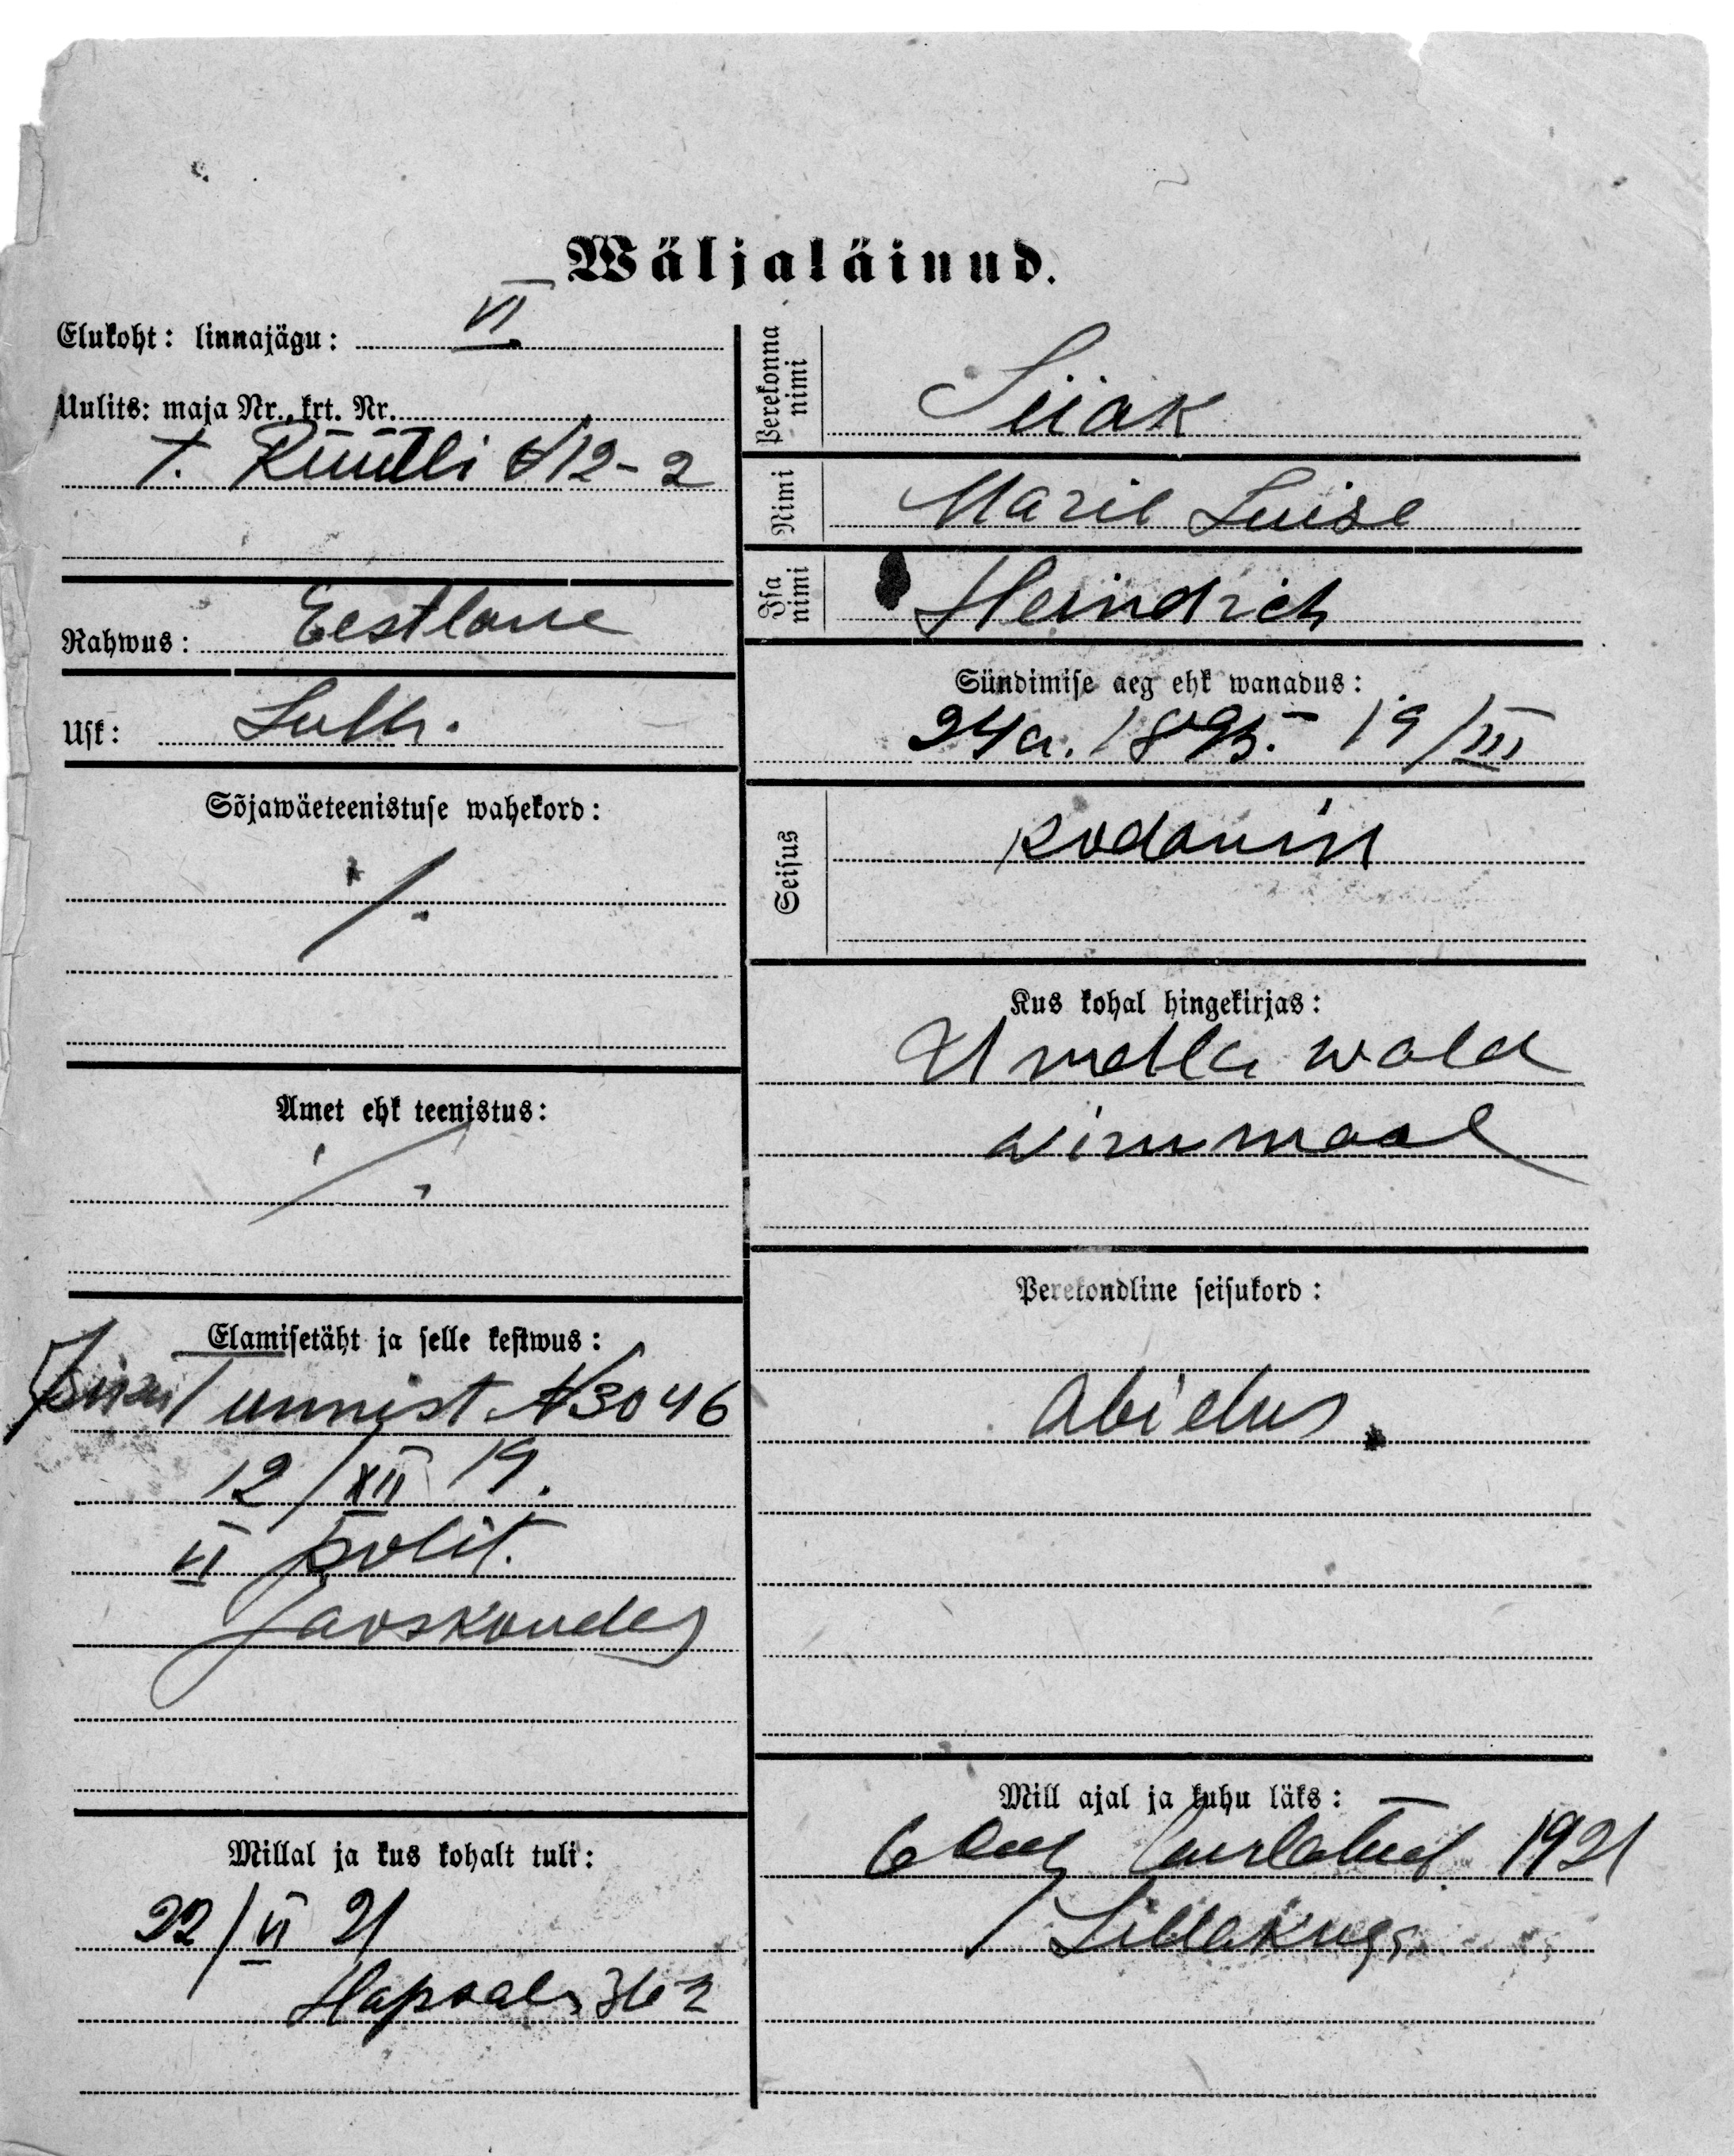 Wäljaläinud.
Elukoht: linnajägu: VI
Uulits: maja Nr., krt. Nr.
T. Rüütli № 12-2
Rahwus: Eestlane
Usk: Luth.
Sõjawäeteenistuse wahekord:
Amet ehk teenistus:
Elamisetäht ja selle kestwus:
tunnist № 3046
12/XII 19.
VI polit.
Jaoskondes
Millal ja kus kohalt tuli:
22/VI 21
Hapsalu 36-2
Perekonna nimi
Siiak
Nimi
Marie Luise
Isa nimi
Heindrich
Sündimise aeg ehk wanadus:
24 a. 1895. 19/III
Seisus
kodanik
Kus kohal hingekirjas:
wald
wirumaal
Perekondline seisukord:
abielus
Mill ajal ja kuhu läks:
6 1921